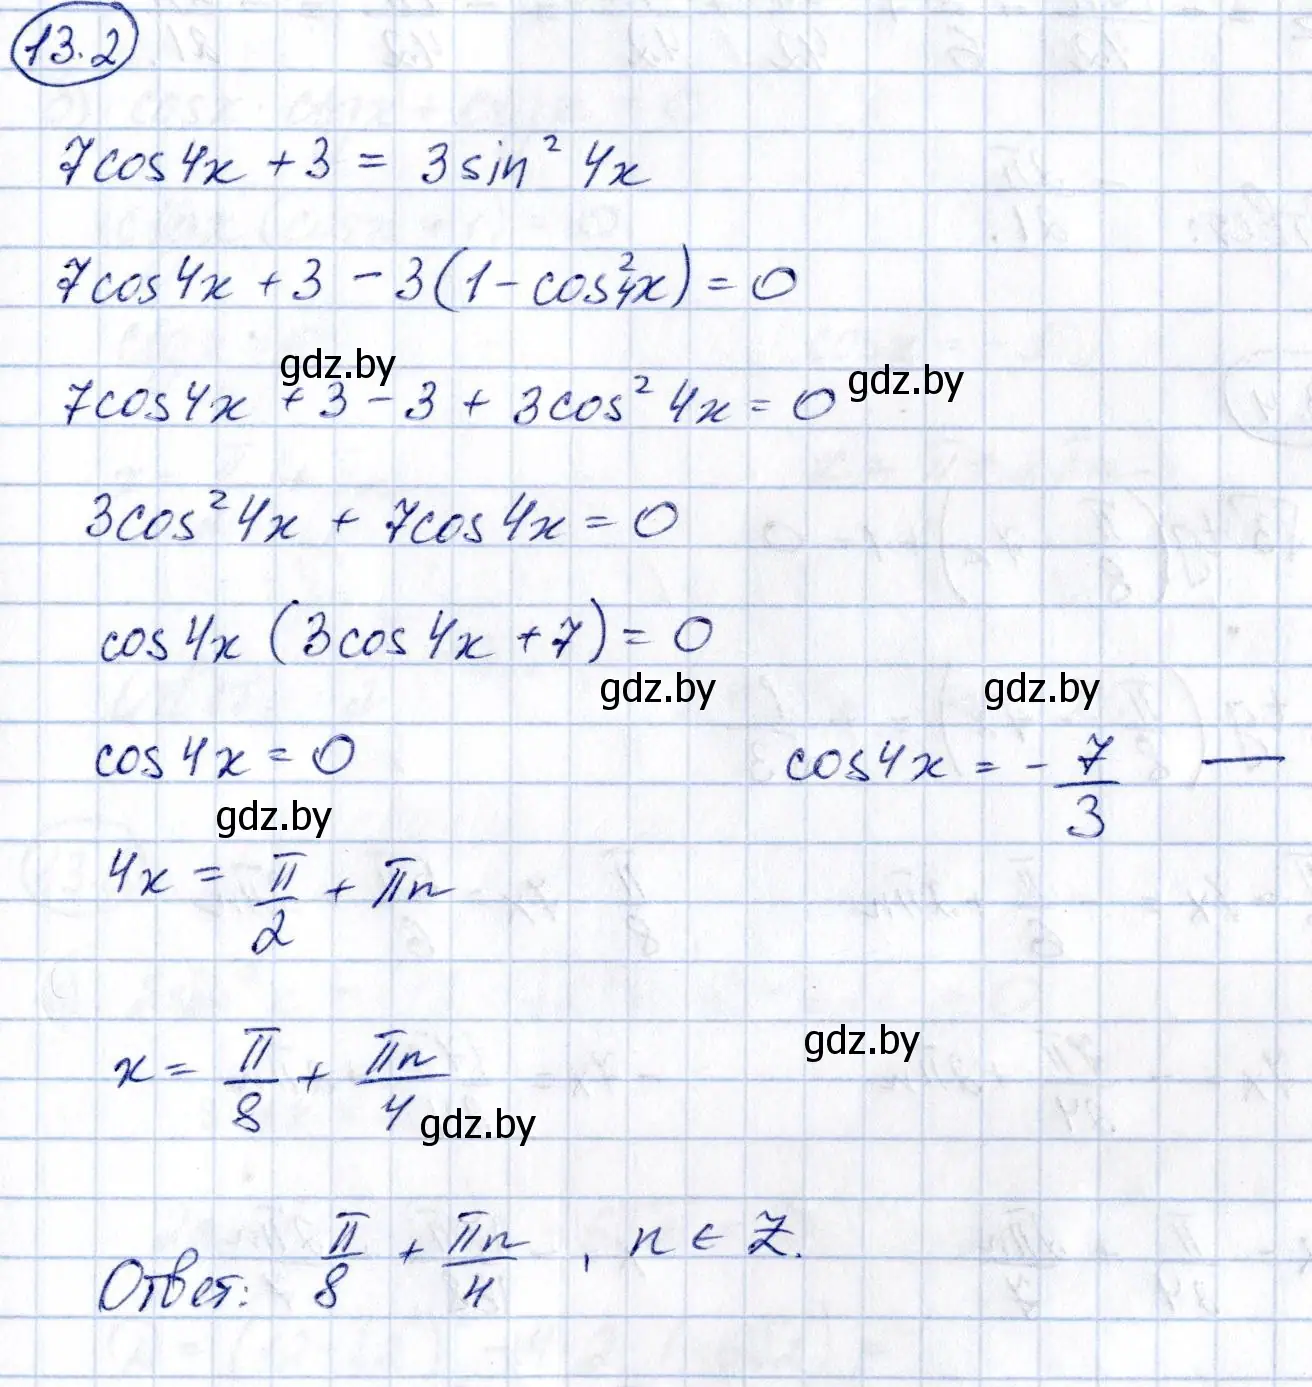 13.2
7cos4x + 3 = 3sin² 4x
7cos4x + 3 - 3(1 - cos²4x) = 0
gdz.by
gdz.by
7cos4x + 3 - 3 + 3cos² 4x = 0
3cos² 4x + 7cos4x = 0
cos4x (3cos4x + 7) = 0
gdz.by
gdz.by
cos4x = 0    cos4x = - 7/3 —
gdz.by
4x = π/2 + πn
gdz.by
x = π/8 + πn/4
gdz.by
Ответ: π/8 + πn/4, n ∈ Z.